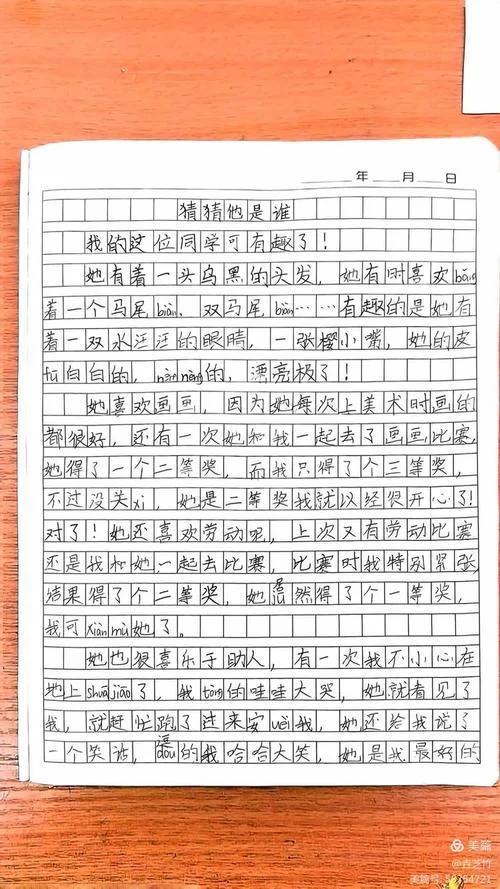 年 月 日
猜猜他是谁
我的这位同学可有趣了!
她有着一头乌黑的头发,她有时喜欢bāng
着一个马尾biàn,双马尾biàn……有趣的是她有
着一双水汪汪的眼睛,一张樱小嘴,她的皮
fu白白的,nènnèng的,漂亮极了!
她喜欢画画,因为她每次上美术时画的
都很好,还有一次她和我一起去了画画比赛,
她得了一个二等奖,而我只得了个三等奖,
不过没关xi,她是二等奖我就以经很开心了!
对了!她还喜欢劳动呢,上次又有劳动比赛
还是我和她一起去比赛,比赛时我特别紧张,
结果得了个二等奖,她居然得了个一等奖,
我可xiànmù她了。
她也很喜乐于助人,有一次我不小心在
地上shuāijiāo了,我tòng的哇哇大哭,她就看见了
我,就赶忙跑了过来安uèi我,她还给我说了
一个笑话,逗dòu的我哈哈大笑,她是我最好的
美篇
@卉芝竹
美篇号 54254721